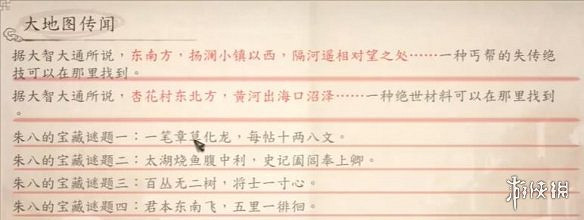 大地图传闻
据大智大通所说，东南方，扬澜小镇以西，隔河遥相对望之处……一种丐帮的失传绝
技可以在那里找到。
据大智大通所说，杏花村东北方，黄河出海口沼泽……一种绝世材料可以在那里找到
。
朱八的宝藏谜题一：一笔章草化龙，每帖十两八文。
朱八的宝藏谜题二：太湖烧鱼腹中利，史记阖闾奉上卿。
朱八的宝藏谜题三：百丛无二树，将士一寸心。
朱八的宝藏谜题四：君本东南飞，五里一徘徊。
游侠网